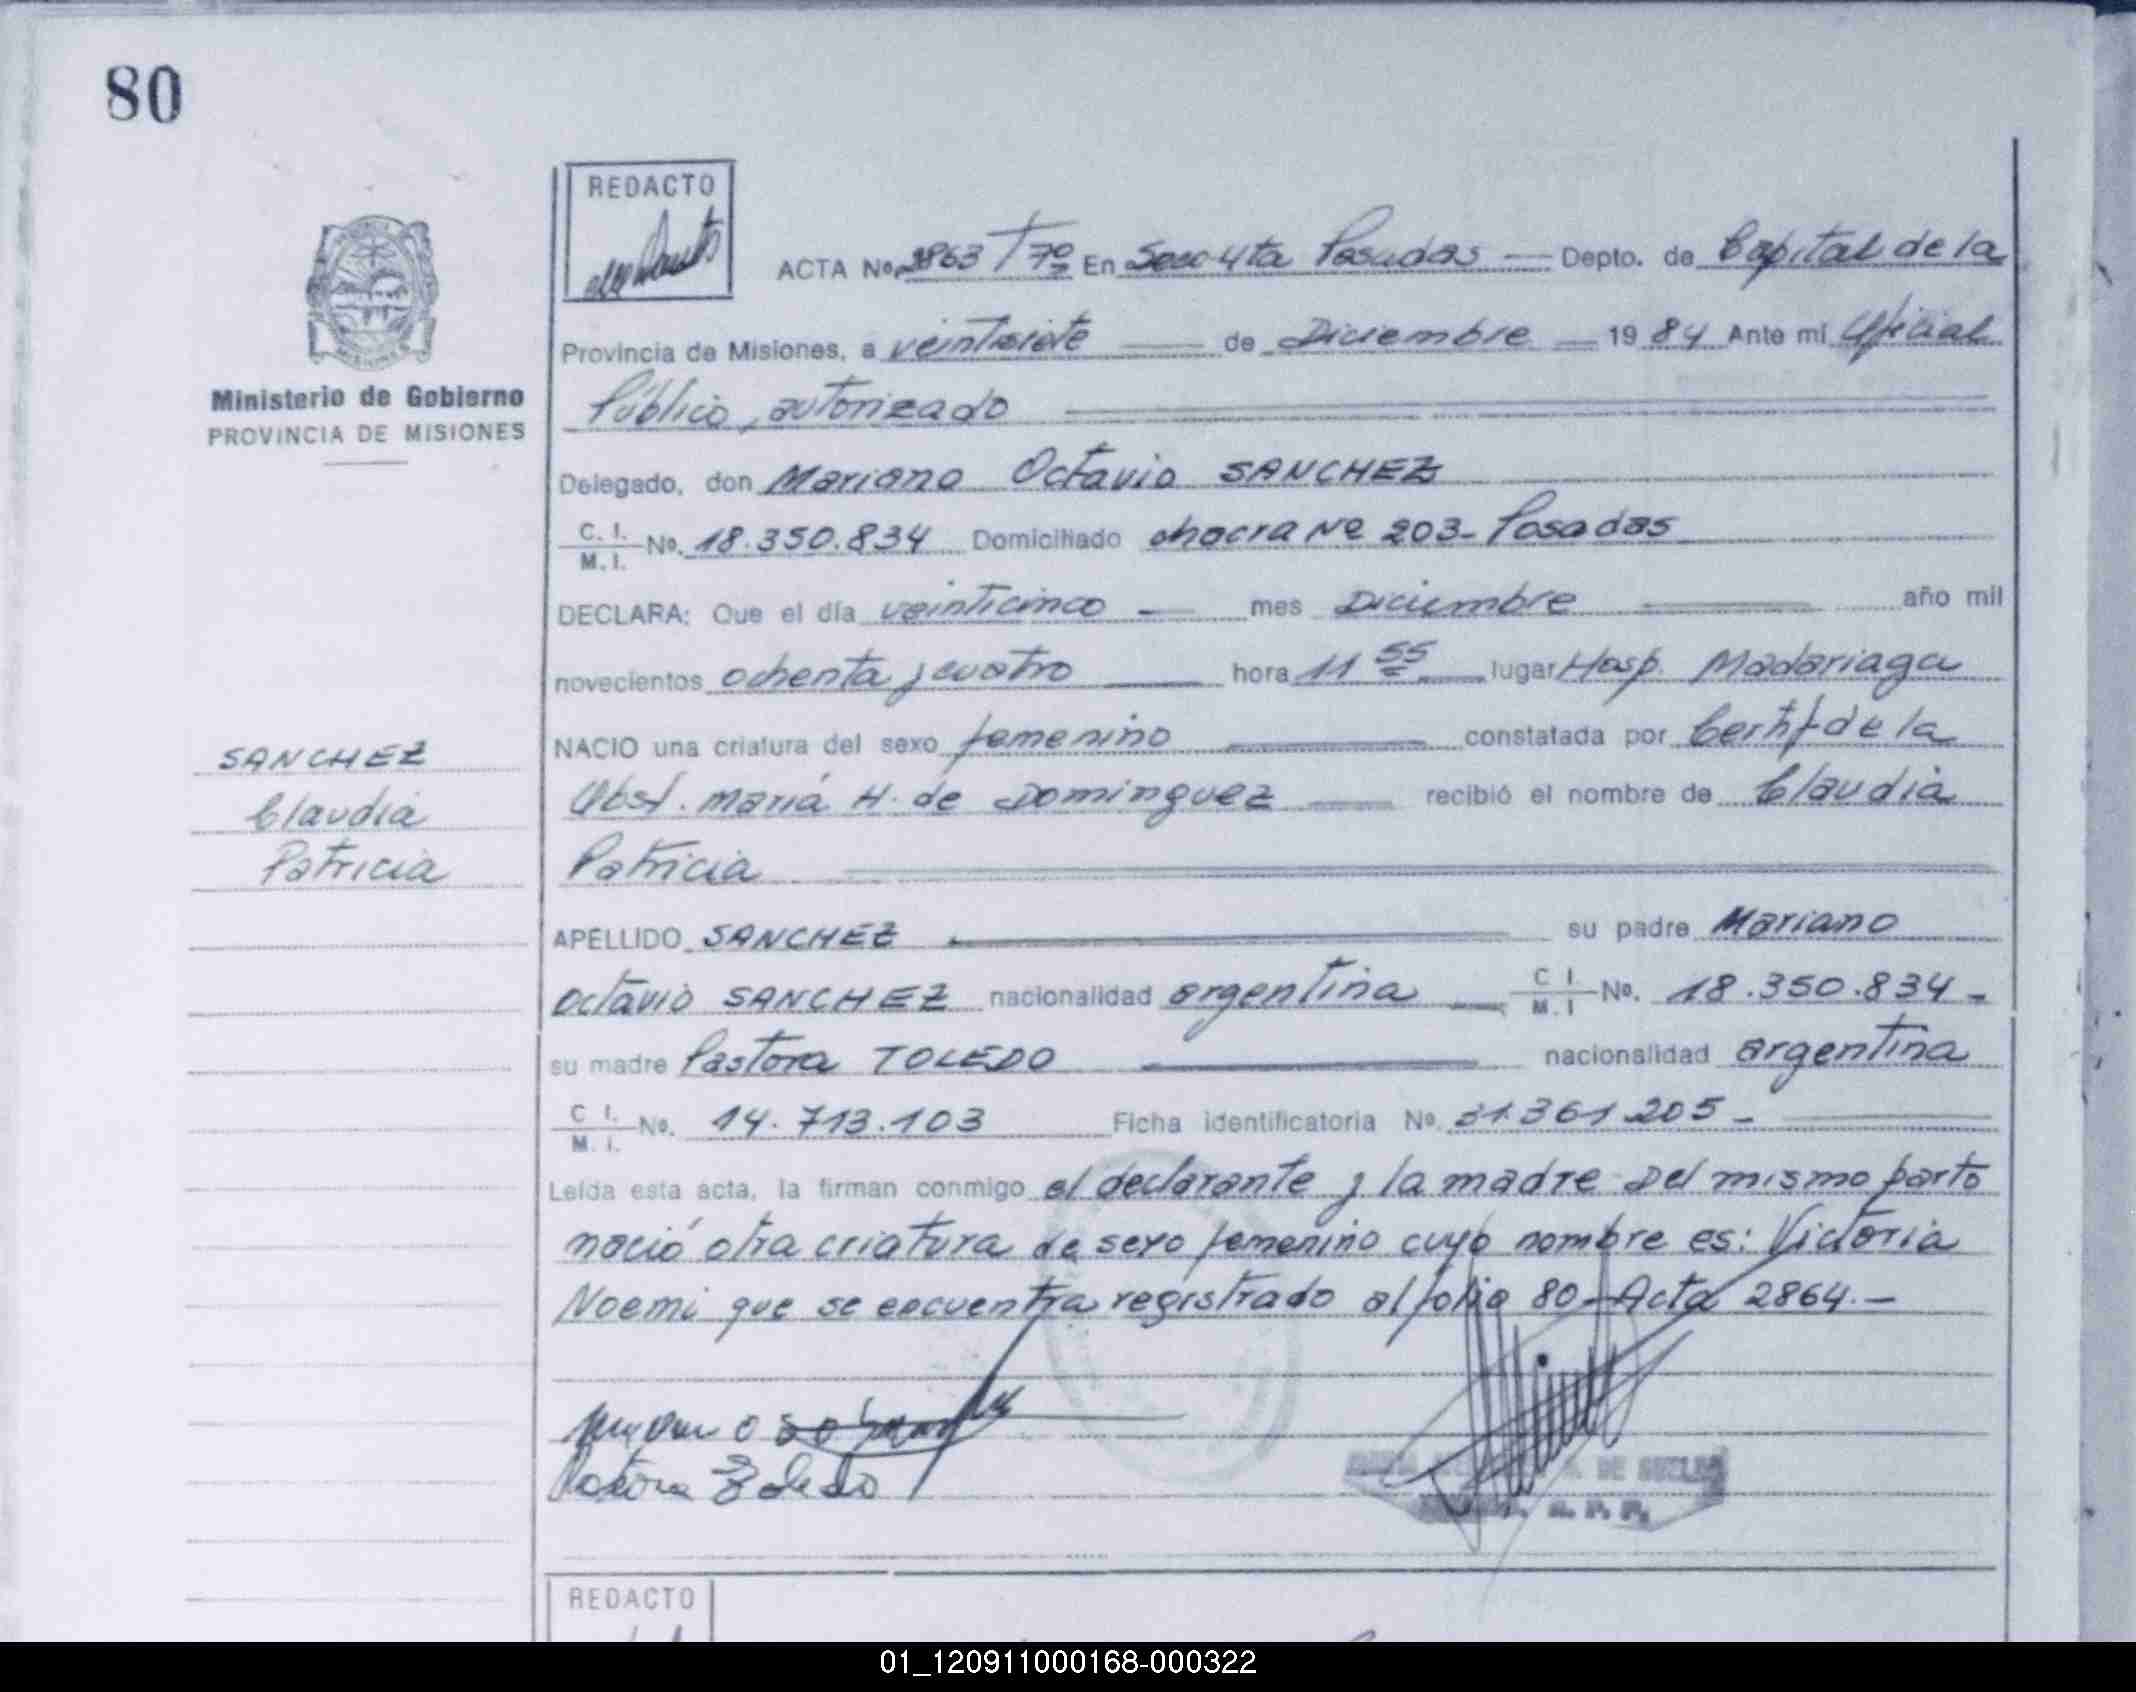 80
REDACTO
ACTA No. 2863 T 7º En Secc 4ta Posadas — Depto. de Capital de la
Provincia de Misiones, a veintisiete — de Diciembre — 1984 Ante mi Oficial
Ministerio de Gobierno
PROVINCIA DE MISIONES
Público, autorizado
Delegado, don Mariano Octavio SANCHEZ
C. I. / M. I. No. 18.350.834 Domiciliado chacra Nº 203- Posadas
DECLARA: Que el día veinticinco — mes Diciembre — año mil
novecientos ochenta y cuatro — hora 11 55 lugar Hosp. Madariaga
SANCHEZ
NACIO una criatura del sexo femenino — constatada por Certif de la
Claudia
Obst. María H. de Dominguez — recibió el nombre de Claudia
Patricia
Patricia
APELLIDO SANCHEZ — su padre Mariano
Octavio SANCHEZ nacionalidad argentina — C I. / M. I No. 18.350.834-
su madre Pastora TOLEDO — nacionalidad argentina
C I. / M. I. No. 14.713.103 Ficha identificatoria No. 31.361.205-
Leída esta acta, la firman conmigo el declarante y la madre Del mismo parto
nació otra criatura de sexo femenino cuyo nombre es: Victoria
Noemi que se encuentra registrado al folio 80-Acta 2864.-
Pastora Toledo
DE
REDACTO
01_120911000168-000322